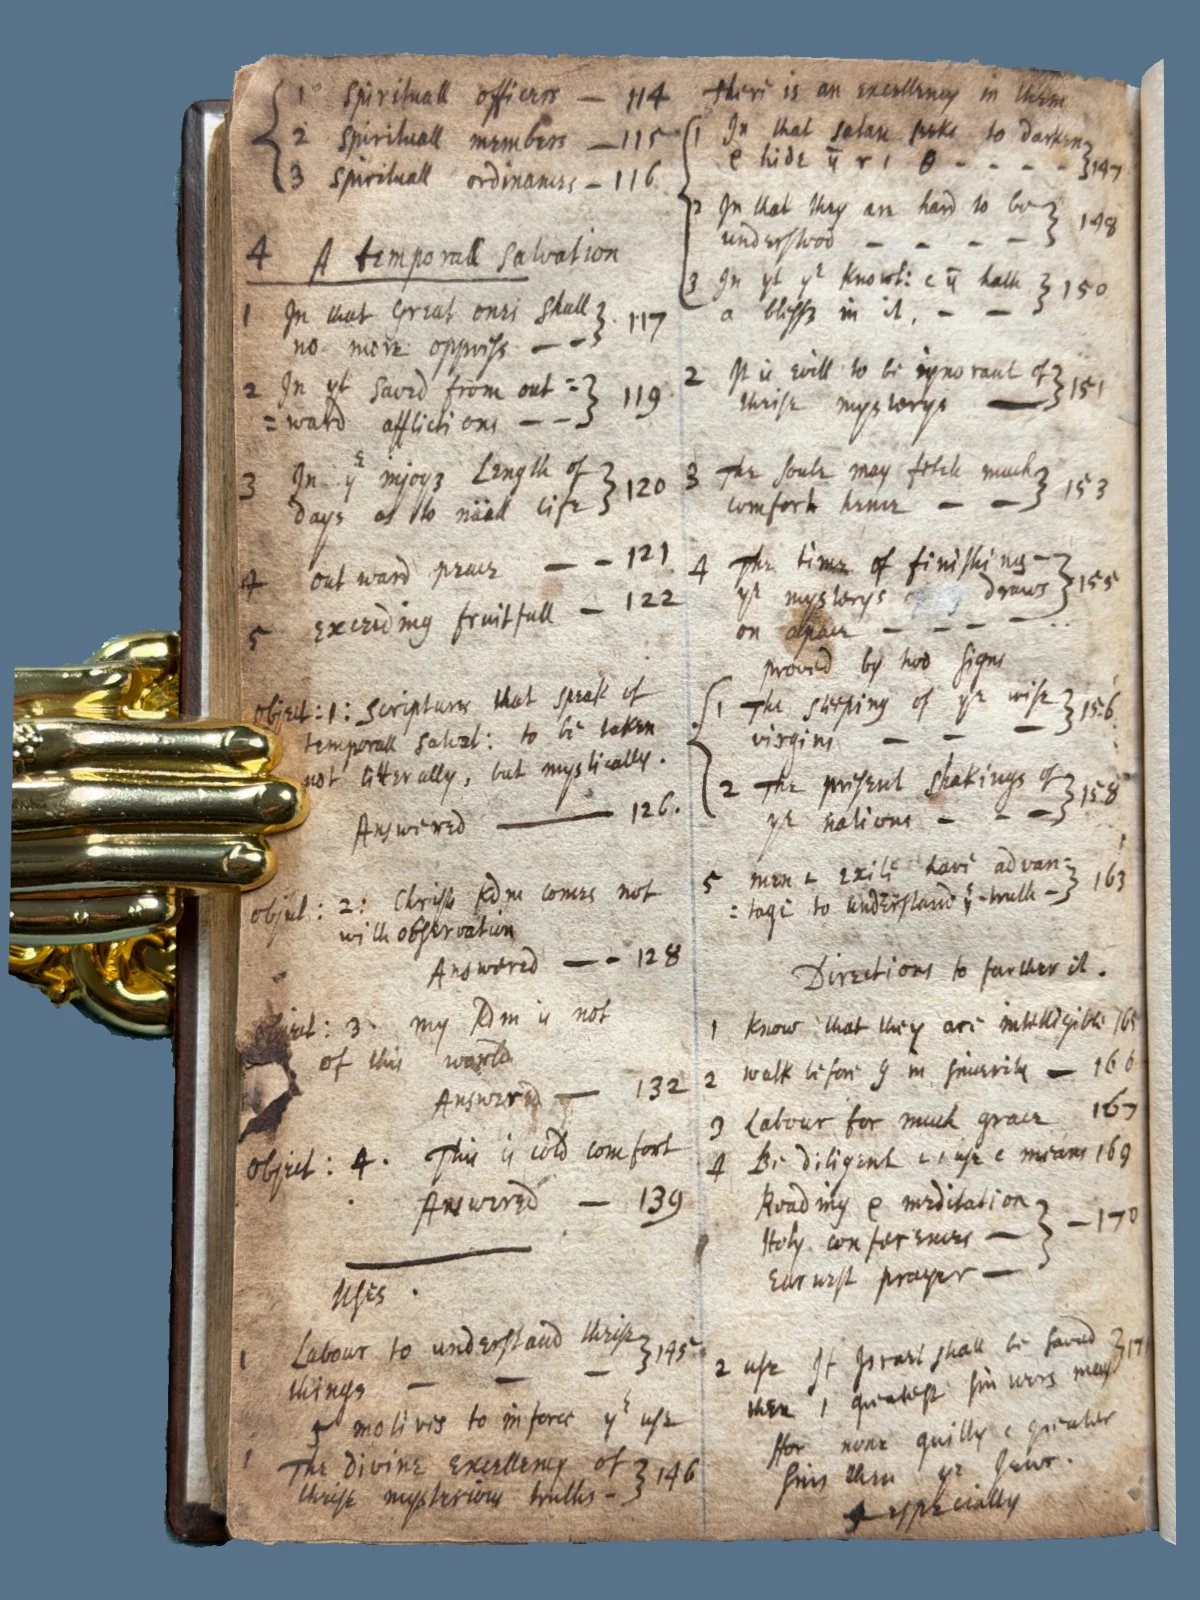 1 Spirituall officers — 114
2 Spirituall members — 115
3 Spirituall ordinances — 116
4 A temporall Salvation
1 In that Great ones shall
no more oppress — — 117
2 In yt saved from out =
= ward afflictions — — 119
3 In ye injoyg Length of
days as to life 120
4 outward peace — — 121
5 Exceeding fruitfull — 122
Object: 1: Scriptures that speak of
temporall salvat: to be taken
not litterally, but mystically.
Answered — 126.
Object: 2: Christs Kdm comes not
with observation
Answered — — 128
Object: 3. my Kdm is not
of this world
Answered — 132
Object: 4. This is cold comfort
Answered — 139
Uses.
1 Labour to understand these
things — — — 145
5 motives to inforce ys use
1 The divine Excellency of
these mysterious truths — 146
there is an excellency in them
1 In that satan seeks to darken
& hide - - - - 147
2 In that they are hard to be
understood — — — — 148
3 In yt ye Knowl: hath
a blessg in it, — — 150
2 It is evill to be ignorant of
these mysterys — 151
3 The Soule may fetch much
comfort hence — — 153
4 The time of finishing
ye mysterys draws
on apace — — — — 155
proved by two signs
1 The sleeping of ye wise
virgins — — — 156
2 The present shakings of
ye nations — — — 158
5 men exile have advan=
= tage to understand ye truth — 163
Directions to further it.
1 Know that they are intelligible 165
2 walk before G in sincerity — 166
3 Labour for much grace 167
4 Be diligent use means 169
Reading & meditation
Holy conferences — — 170
Earnest prayer —
2 use If Israel shall be saved 171
then greatest sinners may
ffor none guilty greater
sins then ye Jews.
especially